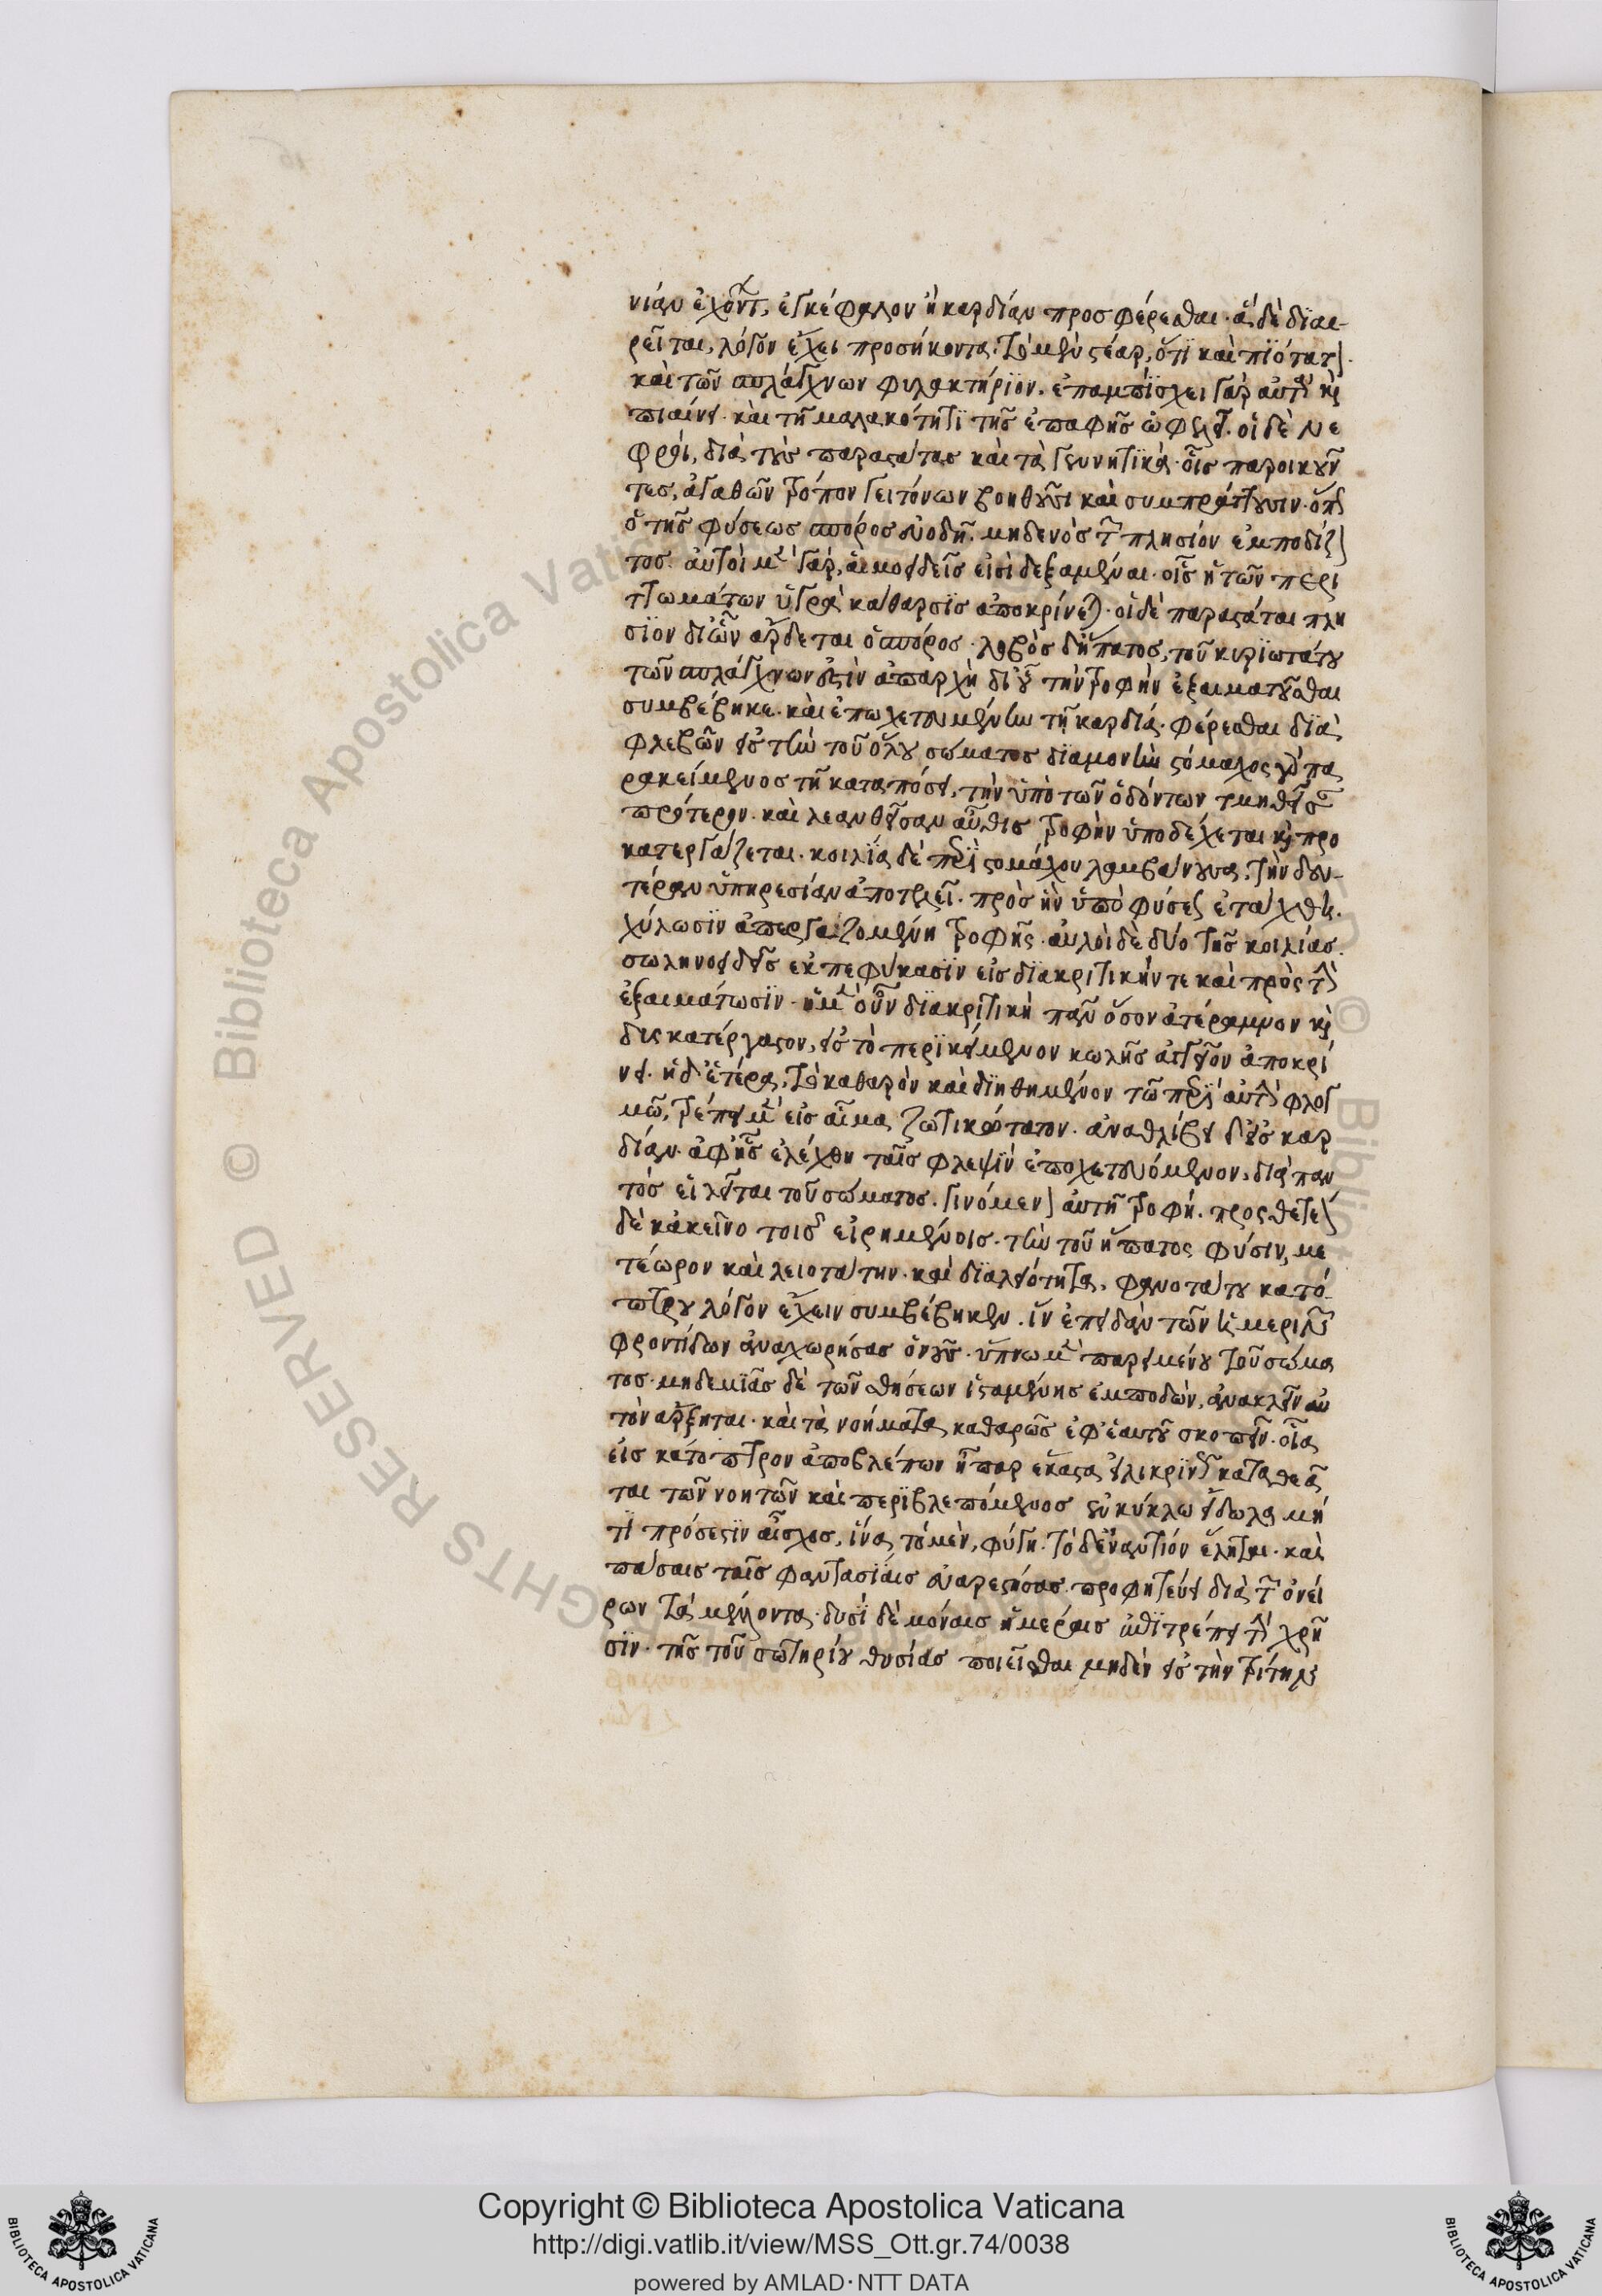 νίαν ἔχοντας, ἐγκέφαλον ἢ καρδίαν προσφέρεσθαι· ἃ δὲ διαι-
ρεῖται, λόγον ἔχει προσήκοντα. τὸ μὲν στέαρ, ὅτι καὶ πιότατον
καὶ τῶν σπλάγχνων φυλακτήριον. ἐπαμπίσχει γὰρ αὐτὰ καὶ
πιαίνει· καὶ τῇ μαλακότητι τῆς ἐπαφῆς ὠφελεῖ. οἱ δὲ νε
φροί, διὰ τοὺς παραστάτας καὶ τὰ γεννητικά· οἷς παροικοῦν
τες, ἀγαθῶν τρόπον γειτόνων βοηθοῦσι καὶ συμπράττουσιν· ὅπως
ὁ τῆς φύσεως σπόρος εὐοδῇ. μηδενὸς τῶν πλησίον ἐμποδίζον
τος. αὐτοὶ μὲν γὰρ, αἱμοειδεῖς εἰσὶ δεξαμεναί· οἷς ἡ τῶν περι
ττωμάτων ὑγρὰ κάθαρσις ἀποκρίνεται· οἱ δὲ παραστάται πλη
σίον δι' ὧν ἄρδεται ὁ σπόρος· λοβὸς δ' ἥπατος, τοῦ κυριωτάτου
τῶν σπλάγχνων ἐστὶν ἀπαρχὴ δι' οὗ τὴν τροφὴν ἐξαιματοῦσθαι
συμβέβηκε. καὶ ἐποχετευομένην τῇ καρδίᾳ· φέρεσθαι διὰ
φλεβῶν εἰς τὴν τοῦ ὅλου σώματος διαμονὴν στόμαχος γὰρ ὁ πα
ρακείμενος τῇ καταπόσει, τὴν ὑπὸ τῶν ὀδόντων τμηθεῖσαν
πρότερον. καὶ λεανθεῖσαν αὖθις τροφὴν ὑποδέχεται καὶ προ
κατεργάζεται. κοιλία δὲ παρὰ στομάχου λαμβάνουσα, τὴν δευ-
τέραν ὑπηρεσίαν ἀποτελεῖ. πρὸς ἣν ὑπὸ φύσεως ἐτάχθη.
χύλωσιν ἀπεργαζομένη τροφῆς. αὐλοὶ δὲ δύο τῆς κοιλίας
σωληνοειδεῖς ἐκπεφύκασιν εἰς διακριτικήν τε καὶ πρὸς τὴν
ἐξαιμάτωσιν. ἡ μὲν οὖν διακριτικὴ πᾶν ὅσον ἀτέραμνον καὶ
δυσκατέργαστον, εἰς τὸ περικείμενον χολῆς ἀγγεῖον ἀποκρί
νει. ἡ δ' ἑτέρα, τὸ καθαρὸν καὶ διηθημένον τῷ περὶ αὐτὴν φλογ
μῷ, τρέπει μὲν εἰς αἷμα ζωτικώτατον. ἀναθλίβει δ' εἰς καρ
δίαν. ἀφ' ἧς ἐλέχθη ταῖς φλεψὶν ἐποχετευόμενον, διὰ παν
τὸς εἰλεῖται τοῦ σώματος. γινόμενον αὐτῇ τροφή. προσθετέον
δὲ κἀκεῖνο τοῖς εἰρημένοις. τὴν τοῦ ἥπατος φύσιν, με
τέωρον καὶ λειοτάτην. καὶ διὰ λειότητα, φανοτάτου κατό-
πτρου λόγον ἔχειν συμβέβηκεν. ἵν' ἐπειδὰν τῶν μεθημερινῶν
φροντίδων ἀναχωρήσας ὁ νοῦς. ὕπνῳ μὲν παρειμένου τοῦ σώμα
τος. μηδεμιᾶς δὲ τῶν αἰσθήσεων ἱσταμένης ἐμποδών, ἀνακλεῖν αὑ
τὸν ἄρξηται. καὶ τὰ νοήματα καθαρῶς ἐφ' ἑαυτοῦ σκοπεῖν. οἷα
εἰς κάτοπτρον ἀποβλέπων ἧπαρ ἕκαστα εἰλικρινῶς καταθεᾶ
ται τῶν νοητῶν καὶ περιβλεπόμενος ἐν κύκλῳ εἴδωλα μή
τι πρόσεστιν αἶσχος, ἵνα, τὸ μὲν, φύγῃ. τὸ δ' ἐναντίον ἕληται. καὶ
πάσαις ταῖς φαντασίαις εὐαρεστήσας προφητεύει διὰ τῶν ὀνεί
ρων τὰ μέλλοντα. δυσὶ δὲ μόναις ἡμέραις ἐπιτρέπει τὴν χρῆ
σιν. τῆς τοῦ σωτηρίου θυσίας ποιεῖσθαι μηδὲν εἰς τὴν τρίτην
Copyright © Biblioteca Apostolica Vaticana
http://digi.vatlib.it/view/MSS_Ott.gr.74/0038
powered by AMLAD·NTT DATA